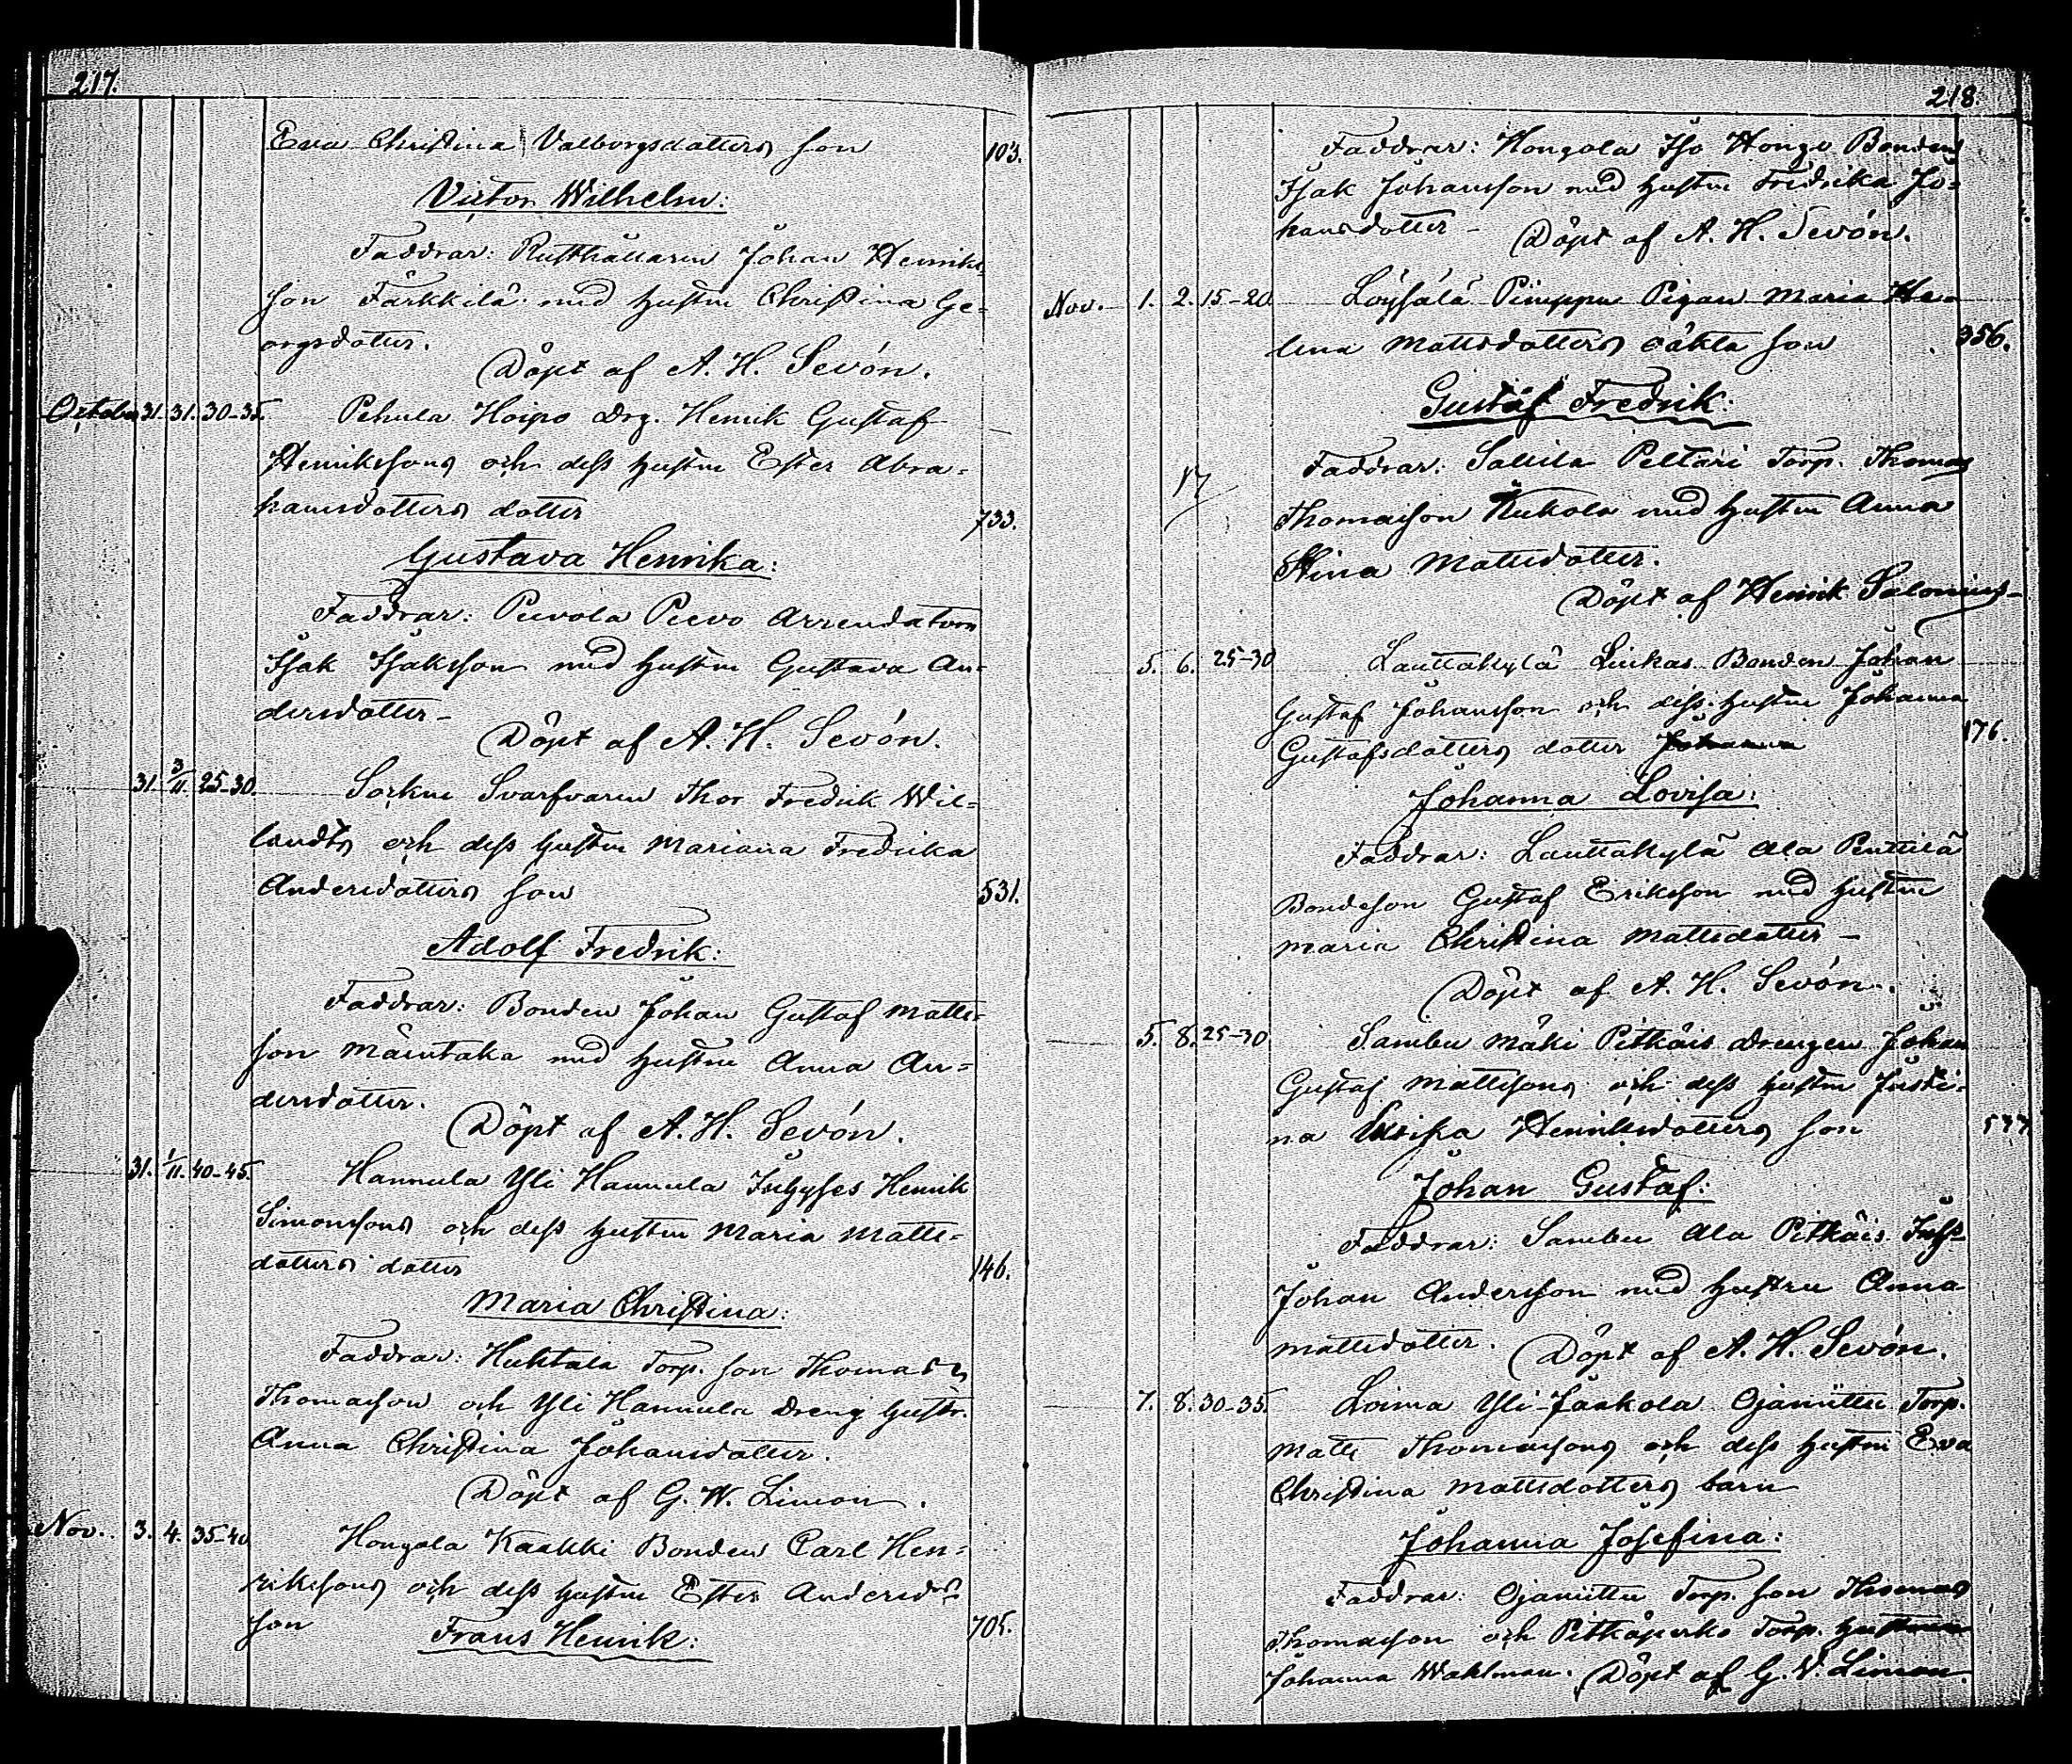 217.
Eva Christina Valborgsdotters son 103.
Victor Wilhelm:
Faddrar: Rusthållaren Johan Henriks-
son Tärkkilä med hustru Christina Ge-
orgsdotter.
Döpt af A. H. Sevón.
October 31. 31. 30-35. Pehula Hoipo Drg. Henrik Gustaf
Henrikssons och dess hustru Ester Abra-
hamsdotters dotter 733.
Gustava Henrika:
Faddrar: Peevola Peevo Arrendatorn
Isak Isaksson med hustru Gustava An-
dersdotter-
Döpt af A. H. Sevón.
31. 3/11. 25-30. Sorkni Svarfvaren Thor Fredrik Wil-
landts och dess hustru Mariana Fredrika
Andersdotters son 531.
Adolf Fredrik:
Faddrar: Bonden Johan Gustaf Matts-
son Mäentaka med hustru Anna An-
dersdotter.
Döpt af A. H. Sevón.
31. 1/11. 40-45. Hannula Yli Hannula Inhyses Henrik
Simonssons och dess hustru Maria Matts-
dotters dotter 146.
Maria Christina:
Faddrar: Huhtala Torp. son Thomas
Thomasson och Yli Hannula Dreng hustr.
Anna Christina Johansdotter.
Döpt af G. W. Limon.
Nov. 3. 4. 35-40 Hongola Kaakki Bonden Carl Hen-
rikssons och dess hustru Ester Andersd:s
son 705.
Frans Henrik:
218.
Faddrar: Hongola Iso Hongo Bonden
Isak Johansson med hustru Fredrika Jo-
hansdotter - Döpt af A. H. Sevón.
Nov. 1. 2. 15-20 Löysälä Pimppu Pigan Maria He-
lena Mattsdotters oäkta son 356.
Gustaf Fredrik:
Faddrar: Sallila Peltari Torp. Thomas
Thomasson Nukola med hustru Anna
Stina Mattsdotter.
Döpt af Henrik Salonius-
5. 6. 25-30 Lauttakylä Liukas Bonden Johan
Gustaf Johansson och dess hustru Johanna
Gustafsdotters dotter Johanna 176.
Johanna Lovisa:
Faddrar: Lauttakylä Ala Penttilä
Bondeson Gustaf Eriksson med hustru
Maria Christina Mattsdotter -
Döpt af A. H. Sevón.
5. 8. 25-30 Sambu Mäki Pitkäis Drengen Johan
Gustaf Mattssons och dess hustru Justi-
na Henriksdotters son 577
Johan Gustaf:
Faddrar: Sambu Ala Pitkäis
Johan Andersson med hustru Anna
Mattsdotter. Döpt af A. H. Sevón.
7. 8. 30-35. Loima Yli-Jaakola Ojaniittu Torp.
Matts Thomassons och dess hustru Eva
Christina Mattsdotters barn
Johanna Josefina:
Faddrar: Ojaniittu Torp. son Thomas
Thomasson och Pitkäperko Torp. hustrun
Johanna Wahlman. Döpt af G. W. Limon.